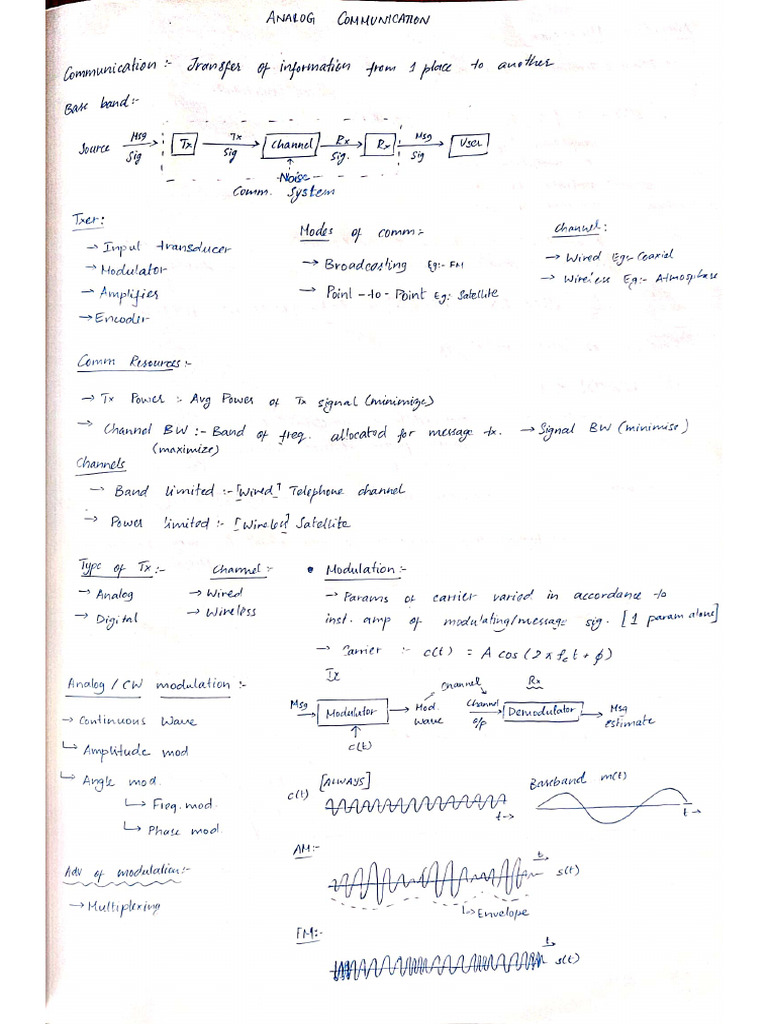 ANALOG COMMUNICATION
Communication :- Transfer of information from 1 place to another
Base band :-
Source Msg Sig Tx Tx Sig Channel Rx Sig. Rx Msg Sig User
Noise
Comm. System
Txer:
→ Input transducer
→ Modulator
→ Amplifier
→ Encoder
Modes of comm:-
→ Broadcasting Eg:- FM
→ Point-to-Point Eg: Satellite
Channel:
→ Wired Eg:- Coaxial
→ Wireless Eg:- Atmosphere
Comm Resources:-
→ Tx Power :- Avg Power of Tx signal (minimize)
→ Channel BW :- Band of freq. allocated for message tx. → Signal BW (minimise)
(maximize)
Channels
→ Band limited :- [Wired] Telephone channel
→ Power limited :- [Wireless] Satellite
Type of Tx :-
→ Analog
→ Digital
Channel :-
→ Wired
→ Wireless
• Modulation :-
→ Params of carrier varied in accordance to
inst. amp of modulating/message sig. [1 param alone]
→ Carrier :- c(t) = A cos (2π fc t + ϕ)
Tx
Channel
Rx
Msg → Modulator → Mod. wave Channel o/p → Demodulator → Msg estimate
c(t)
Analog / CW modulation :-
→ Continuous Wave
↳ Amplitude mod
↳ Angle mod.
↳ Freq. mod.
↳ Phase mod.
Adv of modulation:-
→ Multiplexing
c(t) [ALWAYS] t →
Baseband m(t) t →
AM:- t s(t)
↳ Envelope
FM:- t s(t)